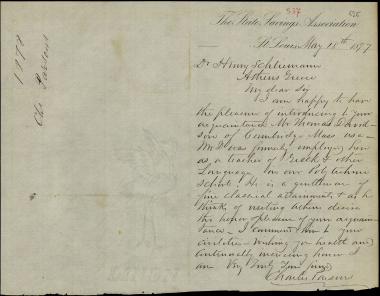 537
The State Savings Association
St Louis May 18th 1877
Dr Henry Schliemann
Athens Greece
My dear Sir
I am happy to have
the pleasure of introducing to your
acquaintance Mr Thomas Davidson
of Cambridge Mass
Mr D was formerly employed here
as a teacher of Greek & other
Languages in our Polytechnic
School. He is a gentleman of
fine classical attainments & as he
thinks of visiting Athens desires
the honor & pleasure of your acquain-
tance – I commend him to your
civilities – Wishing you health and
continually increasing honor I
am Very Truly Your friend
Charles Parsons
1877
Chs Parsons